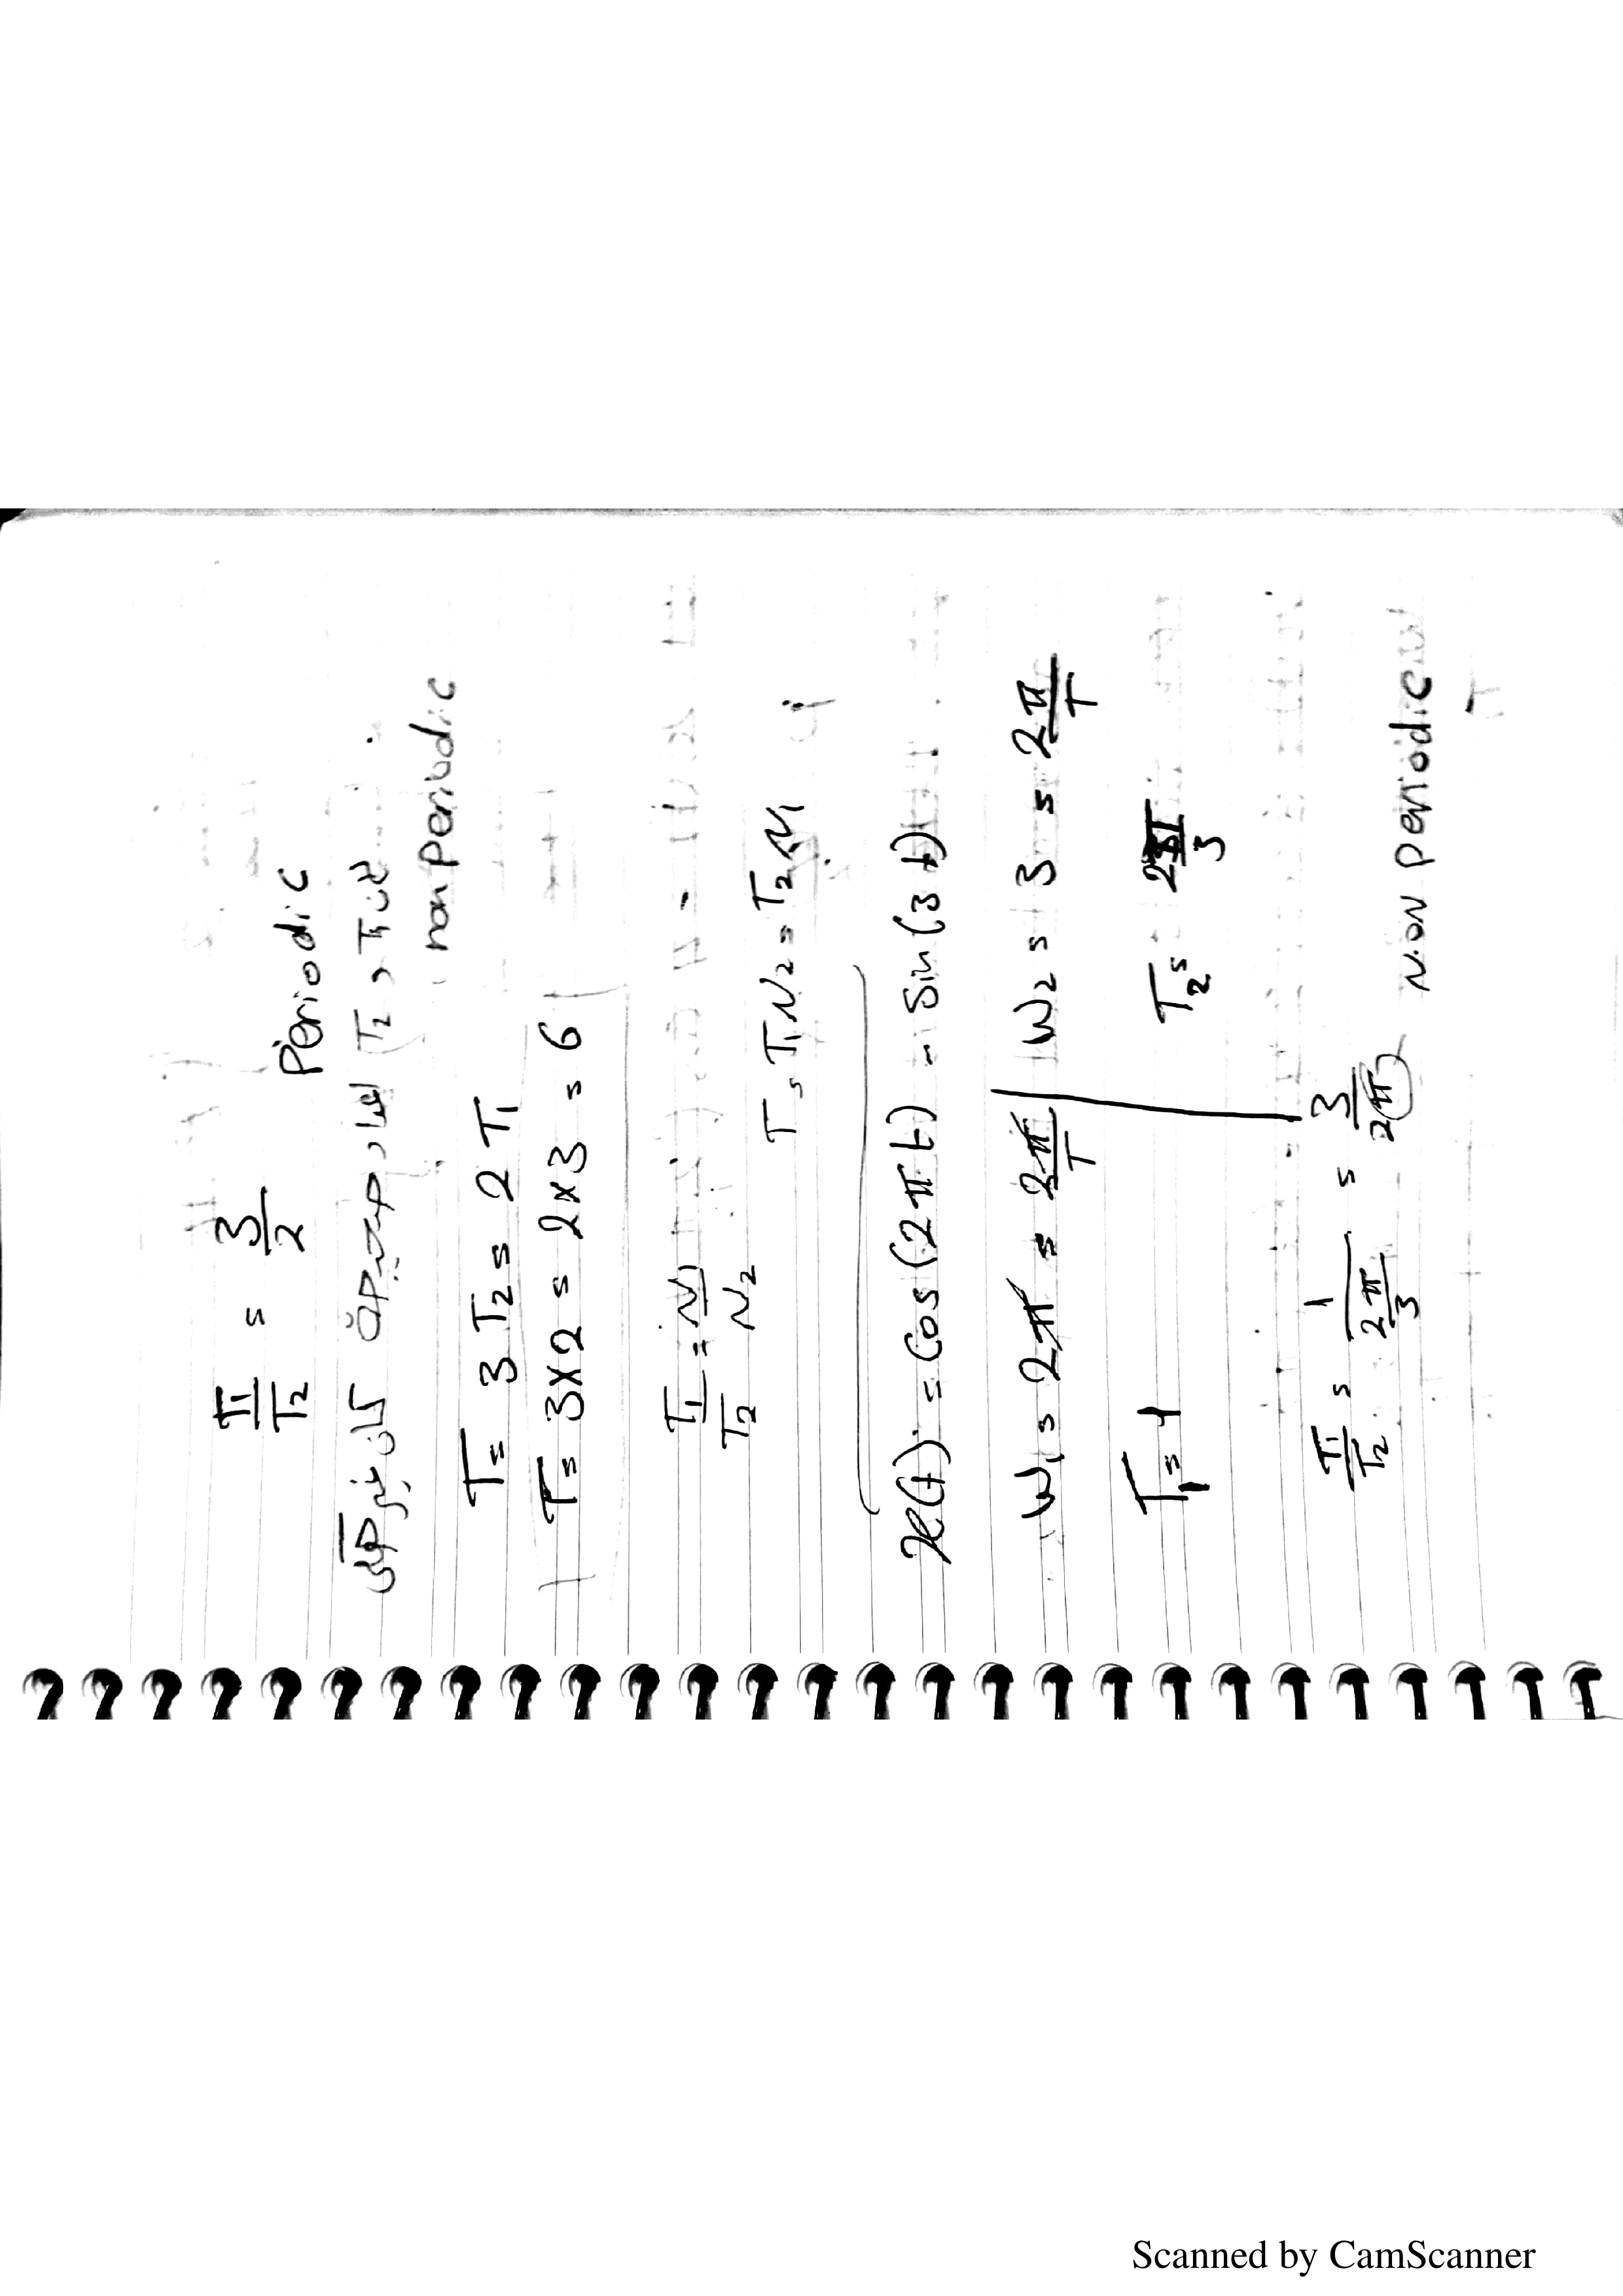 T1/T2 = 3/2 Periodic
T1 و T2) اعداد صحيحة
non periodic
T = 3 T2 = 2 T1
T = 3x2 = 2x3 = 6
T1/T2 = N1/N2
T = T1 N2 = T2 N1
x(t) = cos(2πt) - sin(3t)
W1 = 2π = 2π/T W2 = 3 = 2π/T
T1 = 1 T2 = 2π/3
T1/T2 = 1/(2π/3) = 3/2π
non periodic
Scanned by CamScanner